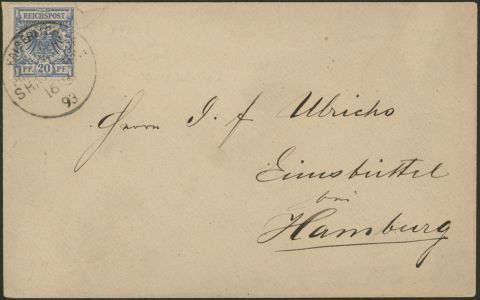 REICHSPOST
PF. 20 PF.
93
Herrn J. f Ulrichs
Eimsbüttel
bei
Hamburg